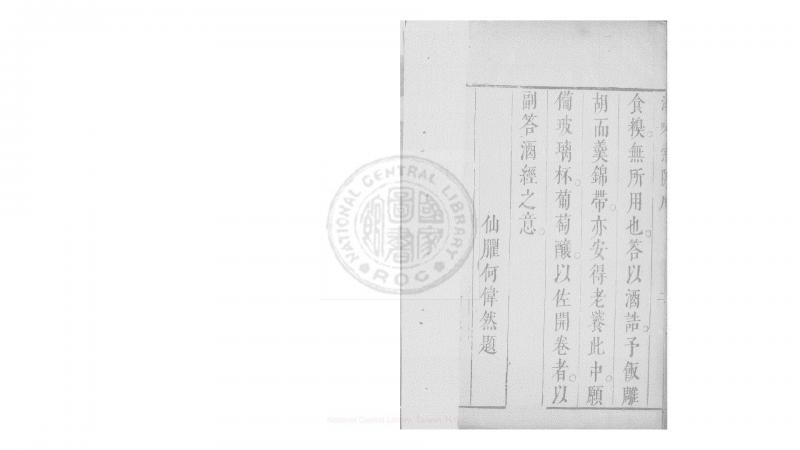 食糗。無所用也。答以酒誥。予飯雕
胡而羹錦帶。亦安得老饕此中。願
備玻璃杯。葡萄釀。以佐開卷者。以
副答酒經之意。
仙臞何偉然題
國家圖書館
NATIONAL CENTRAL LIBRARY
ROC
National Central Library, Taiwan, R.O.C